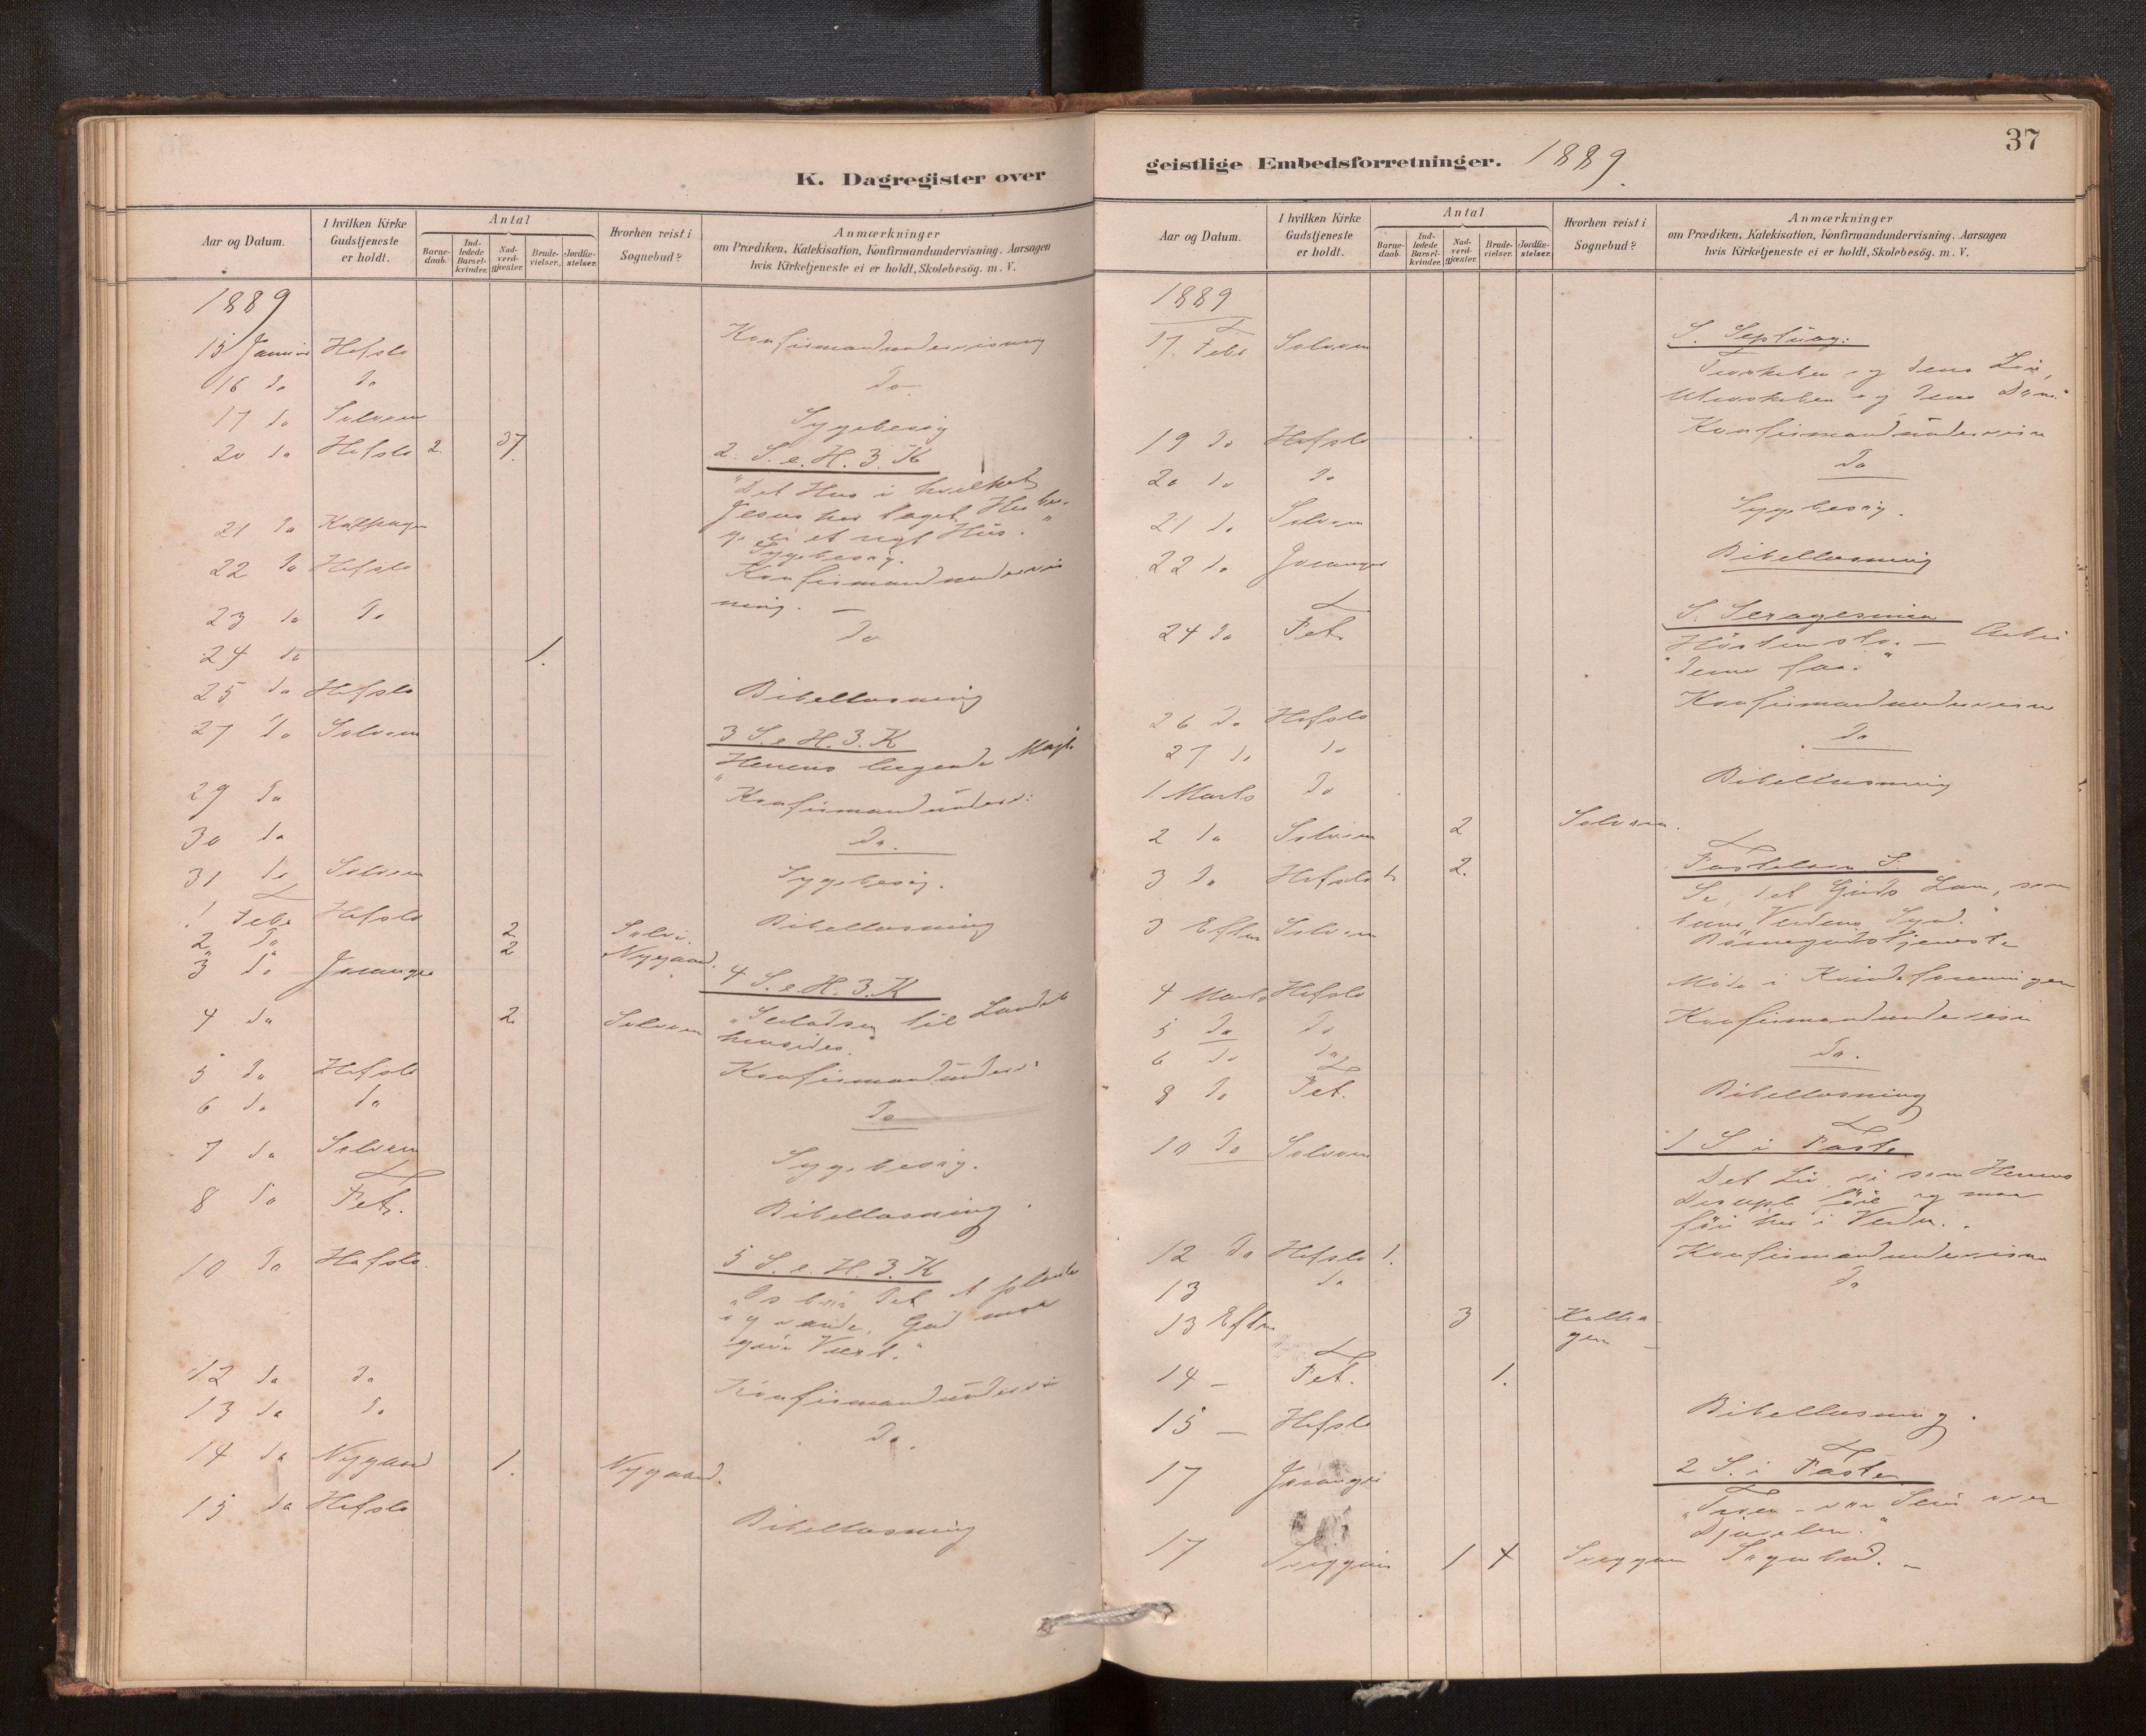 K. Dagregister over
Aar og Datum.
I hvilken Kirke
Gudstjeneste
er holdt.
Antal
Barne-
daab.
Ind-
ledede
Barsel-
kvinder.
Nad-
verd-
gjester.
Brude-
vielser.
Jordfæ-
stelser.
Hvorhen reist i
Sognebud?
Anmærkninger
om Prædiken, Katekisation, Konfirmandundervisning. Aarsagen
hvis Kirketjeneste ei er holdt, Skolebesög. m. V.
1889
15 Januar Hafslo Konfirmandundervisning
16 do do do
17 do Solvorn Sygebesøg
20 do Hafslo 2. 37. 2. S. e. H. 3. K
"Det Hus i hvilket
Jesus har taget Herber-
ge er et Hus."
21 do Sygebesøg.
22 do Hafslo Konfirmandundervis
ning. –
23 do do do
24 do 1.
25 do Hafslo Bibellæsning
27 do Solvorn 3 S. e. H. 3. K
"Herrens Magt"
29 do Konfirmandunderv:
30 do do.
31 do Solvorn Sygebesøg.
1 Febr Hafslo Bibellæsning
2 do 2 Solv.
3 do Joranger 2 Nygaard. 4 S. e. H. 3. K
4 do 2. Solvorn "til Landet
hinsides.
5 do Hafslo Konfirmandunderv:
6 do do do
7 do Solvorn Sygebesøg.
8 do Fet. Bibellæsning.
10 do Hafslo. 5 S. e. H. 3. K
"Os bør det at plante
og vande, Gud maa
give Vext."
12 do do Konfirmandunderv
13 do do do.
14 do Nygaard 1. Nygaard.
15 do Hafslo Bibellæsning
geistlige Embedsforretninger. 1889.
37
Aar og Datum.
I hvilken Kirke
Gudstjeneste
er holdt.
Antal
Barne-
daab.
Ind-
ledede
Barsel-
kvinder.
Nad-
verd-
gjester.
Brude-
vielser.
Jordfæ-
stelser.
Hvorhen reist i
Sognebud?
Anmærkninger
om Prædiken, Katekisation, Konfirmandundervisning. Aarsagen
hvis Kirketjeneste ei er holdt, Skolebesög. m. V.
1889
17. Febr Solvorn S. Septuag:
Troskaben og dens Løn,
Utroskaben og dens Dom."
19 do Hafslo Konfirmandundervisn
20 do do do
21 do Solvorn Sygebesøg.
22 do Joranger Bibellæsning
24 do Fet. S. Sexagesima
Høsten sto. – Arbei
"derne faa."
26 do Hafslo Konfirmandundervisn
27 do do do
1 Marts do Bibellæsning
2 do Solvorn 2 Solvorn.
3 do Hafslo 1. 2. Fastelavn S.
"Se, det Guds Lam, som
bærer Verdens Synd."
3 Efterm Solvorn Børnegudstjeneste
4 Marts Hafslo Møde i Kvindeforeningen
5 do do Konfirmandundervisn
6 do do do.
8 do Fet. Bibellæsning
10 do Solvorn 1 S i Faste
Det Liv, vi som Herrens
Disciple og maa
føre her i Verden.
12 do Hafslo 1. Konfirmandundervisn
13 do do
13 Efterm 3
14 – Fet. 1.
15 – Hafslo Bibellæsning.
17 Joranger 2 S. i Faste
"Troen – vor Seier over
Djævelen."
17 1 + Sognebud. –